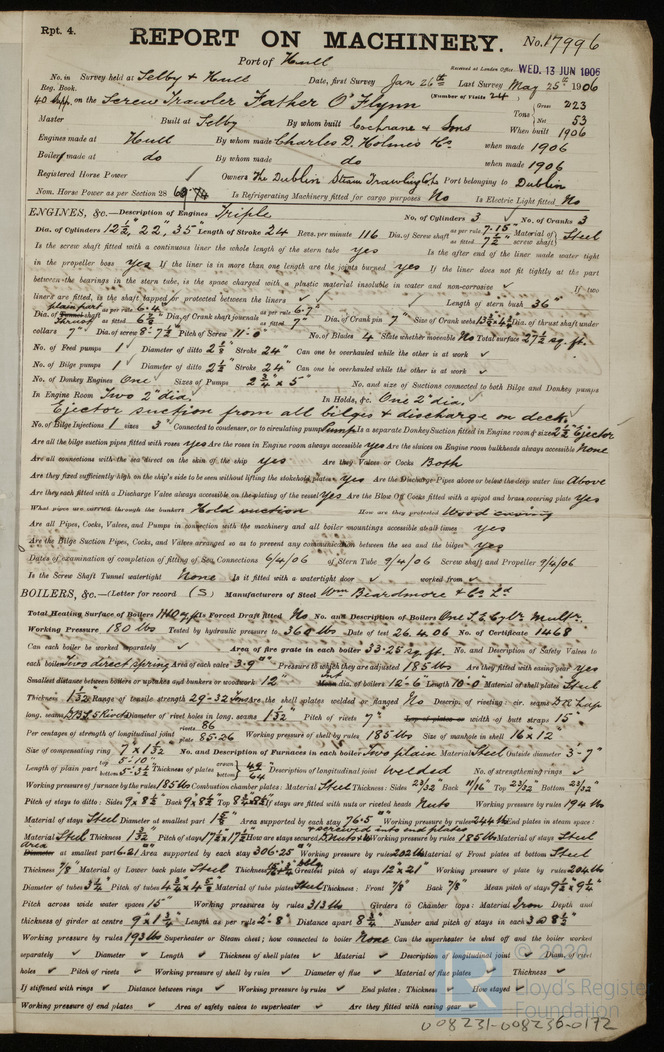 Rpt. 4.
REPORT ON MACHINERY.
No. 17996
Port of Hull
Received at London Office WED. 13 JUN 1906
No. in Survey held at Selby & Hull Date, first Survey Jan 26th Last Survey May 25th 1906
Reg. Book. (Number of Visits 24)
40 Supp. on the Screw Trawler Father O'Flynn Tons Gross 223 Net 53
Master Built at Selby By whom built Cochrane & Sons When built 1906
Engines made at Hull By whom made Charles D. Holmes & Co when made 1906
Boilers made at do By whom made do when made 1906
Registered Horse Power Owners The Dublin Steam Trawling Co Port belonging to Dublin
Nom. Horse Power as per Section 28 Is Refrigerating Machinery fitted for cargo purposes No Is Electric Light fitted No
ENGINES, &c.—Description of Engines Triple No. of Cylinders 3 No. of Cranks 3
Dia. of Cylinders 12½, 22, 35" Length of Stroke 24 Revs. per minute 116 Dia. of Screw shaft as per rule 7.15" as fitted 7½" Material of screw shaft Steel
Is the screw shaft fitted with a continuous liner the whole length of the stern tube yes Is the after end of the liner made water tight
in the propeller boss yes If the liner is in more than one length are the joints burned yes If the liner does not fit tightly at the part
between the bearings in the stern tube, is the space charged with a plastic material insoluble in water and non-corrosive ✓ If two
liners are fitted, is the shaft lapped or protected between the liners ✓ Length of stern bush 36"
plain part
Dia. of Tunnel shaft as per rule 6.4" as fitted 6⅞" Dia. of Crank shaft journals as per rule 6.7" as fitted 7" Dia. of Crank pin 7" Size of Crank webs 13½ x 4¾ Dia. of thrust shaft under
Thrust
collars 7" Dia. of screw 8-7½ Pitch of Screw 11-0" No. of Blades 4 State whether moveable No Total surface 27½ sq. ft.
No. of Feed pumps 1 Diameter of ditto 2⅝ Stroke 24" Can one be overhauled while the other is at work ✓
No. of Bilge pumps 1 Diameter of ditto 2⅝ Stroke 24" Can one be overhauled while the other is at work ✓
No. of Donkey Engines One Sizes of Pumps 2¾ x 5" No. and size of Suctions connected to both Bilge and Donkey pumps
In Engine Room Two 2" dia. In Holds, &c. One 2" dia.
Ejector suction from all bilges & discharge on deck
No. of Bilge Injections 1 sizes 3" Connected to condenser, or to circulating pump Pump Is a separate Donkey Suction fitted in Engine room & size 2½" Ejector
Are all the bilge suction pipes fitted with roses yes Are the roses in Engine room always accessible yes Are the sluices on Engine room bulkheads always accessible None
Are all connections with the sea direct on the skin of the ship yes Are they Valves or Cocks Both
Are they fixed sufficiently high on the ship's side to be seen without lifting the stokehold plates yes Are the Discharge Pipes above or below the deep water line Above
Are they each fitted with a Discharge Valve always accessible on the plating of the vessel yes Are the Blow Off Cocks fitted with a spigot and brass covering plate yes
What pipes are carried through the bunkers Hold suction How are they protected Wood casing
Are all Pipes, Cocks, Valves, and Pumps in connection with the machinery and all boiler mountings accessible at all times yes
Are the Bilge Suction Pipes, Cocks, and Valves arranged so as to prevent any communication between the sea and the bilges yes
Dates of examination of completion of fitting of Sea Connections 6/4/06 of Stern Tube 9/4/06 Screw shaft and Propeller 9/4/06
Is the Screw Shaft Tunnel watertight None Is it fitted with a watertight door ✓ worked from ✓
BOILERS, &c.—(Letter for record (S) Manufacturers of Steel Wm Beardmore & Co Ld
Total Heating Surface of Boilers Is Forced Draft fitted No No. and Description of Boilers One S.E. Cylr. Multr.
Working Pressure 180 lbs Tested by hydraulic pressure to 360 lbs Date of test 26.4.06 No. of Certificate 1468
Can each boiler be worked separately ✓ Area of fire grate in each boiler 33.25 sq. ft. No. and Description of Safety Valves to
each boiler Two direct spring Area of each valve 3.9" Pressure to which they are adjusted 185 lbs Are they fitted with easing gear yes
Smallest distance between boilers or uptakes and bunkers or woodwork 12" Int dia. of boilers 12-6" Length 10-0 Material of shell plates Steel
Thickness 1 1/32 Range of tensile strength 29-32 tons Are the shell plates welded or flanged No Descrip. of riveting: cir. seams D.R. Lap
long. seams Diameter of rivet holes in long. seams 1 1/32 Pitch of rivets 7" Lap of plates or width of butt straps 15"
Per centages of strength of longitudinal joint rivets 86 plate 85.26 Working pressure of shell by rules 185 lbs Size of manhole in shell 16 x 12"
Size of compensating ring 7 x 1 1/32 No. and Description of Furnaces in each boiler Two plain Material Steel Outside diameter 3-7"
Length of plain part top 5-10" bottom 5-3½ Thickness of plates crown 49/64 bottom Description of longitudinal joint welded No. of strengthening rings ✓
Working pressure of furnace by the rules 185 lbs Combustion chamber plates: Material Steel Thickness: Sides 23/32 Back 11/16" Top 23/32" Bottom 23/32
Pitch of stays to ditto: Sides 9 x 8½ Back 9 x 8½ Top If stays are fitted with nuts or riveted heads Nuts Working pressure by rules 194 lbs
Material of stays Steel Diameter at smallest part 1⅝ Area supported by each stay 76.5" Working pressure by rules 244 lbs End plates in steam space:
screwed into end plates
Material Steel Thickness 1 1/32 Pitch of stays 17½ x 17½ How are stays secured Working pressure by rules 185 lbs Material of stays Steel
area
Diameter at smallest part 6.21 Area supported by each stay 306.25" Working pressure by rules 202 lbs Material of Front plates at bottom Steel
Thickness 7/8" Material of Lower back plate Steel Thickness Greatest pitch of stays 12 x 21" Working pressure of plate by rules 204 lbs
Diameter of tubes 3¼ Pitch of tubes 4½ x 4⅝ Material of tube plates Steel Thickness: Front 7/8" Back 7/8" Mean pitch of stays 9½ x 9¼
Pitch across wide water spaces 15" Working pressures by rules 313 lbs Girders to Chamber tops: Material Iron Depth and
thickness of girder at centre 9 x 1¾ Length as per rule 2-8" Distance apart 8¾ Number and pitch of stays in each 3 @ 8½"
Working pressure by rules 193 lbs Superheater or Steam chest; how connected to boiler None Can the superheater be shut off and the boiler worked
separately ✓ Diameter ✓ Length ✓ Thickness of shell plates ✓ Material ✓ Description of longitudinal joint ✓ Diam. of rivet
holes ✓ Pitch of rivets ✓ Working pressure of shell by rules ✓ Diameter of flue ✓ Material of flue plates ✓ Thickness ✓
If stiffened with rings ✓ Distance between rings ✓ Working pressure by rules ✓ End plates: Thickness ✓ How stayed ✓
Working pressure of end plates ✓ Area of safety valves to superheater ✓ Are they fitted with easing gear ✓
© 2020
Lloyd's Register
Foundation
008231-008236-0172